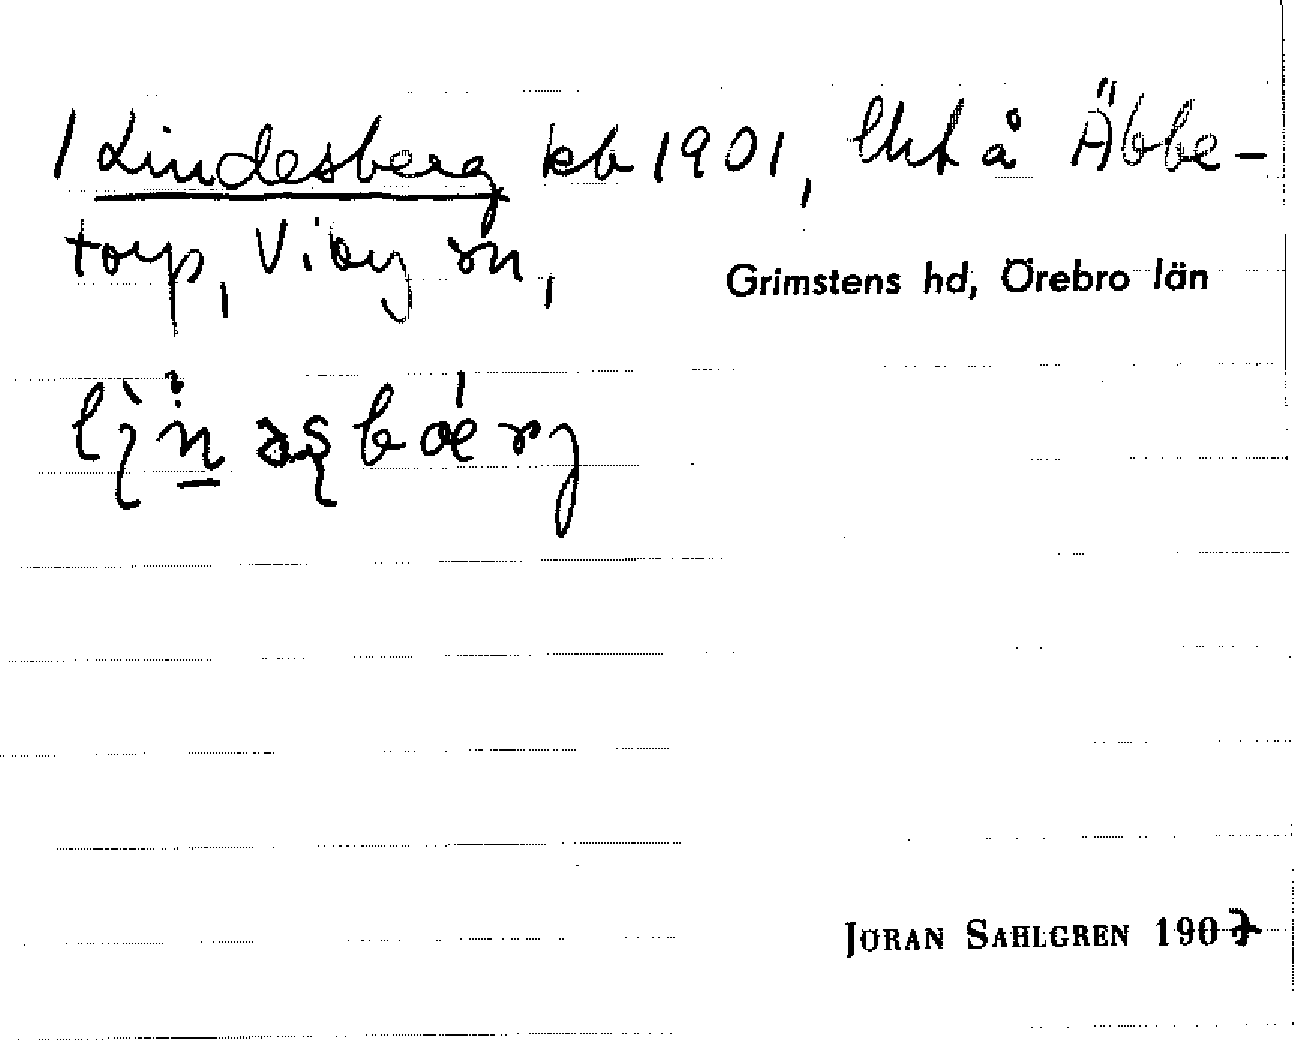 / Lindesberg kb 1901, lht å Äbbe-
torp, Viby sn,
Grimstens hd, Örebro län
JÖRAN SAHLGREN 1907